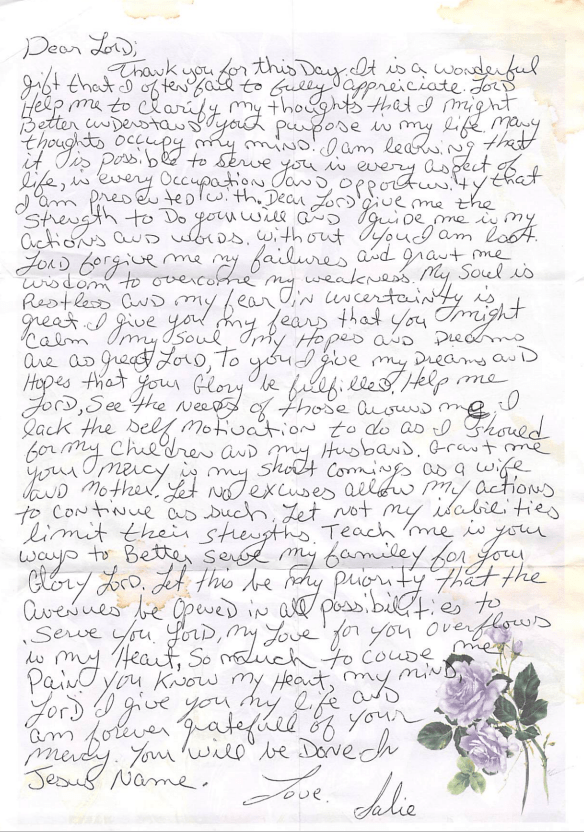 Dear Lord;
Thank you for this Day. It is a wonderful
gift that I often fail to fully appreiciate. Lord
Help me to clarify my thoughts that I might
Better understand your purpose in my life. Many
thoughts occupy my mind. I am learning that
it is possible to serve you in every aspect of
life, in every occupation and opportunity that
I am presented with. Dear Lord give me the
Strength to Do you will and guide me in my
actions and words. Without you I am lost.
Lord forgive me my failures and grant me
wisdom to overcome my weakness. My Soul is
Restless and my fear in uncertainity is
great. I give you my fears that you might
Calm my Soul. My Hopes and Dreams
are as great Lord, To you I give my Dreams and
Hopes that your Glory be fulfilled. Help me
Lord, See the needs of those around me. I
lack the self motivation to do as I should
for my Children and my Husband. Grant me
your mercy in my short comings as a wife
and Mother. Let no excuses allow my actions
to continue as such. Let not my isabilities
limit their strengths. Teach me in your
ways to Better serve my familey for your
Glory Lord. Let this be my priority that the
avenues be opened in all possibilities to
Serve you. Lord, my Love for you overflows
in my Heart, So much to couse me
Pain you know my Heart, my mind,
Lord I give you my life and
am forever gratefull of your
mercy. You will be Done In
Jesus Name.
Love.
Salie